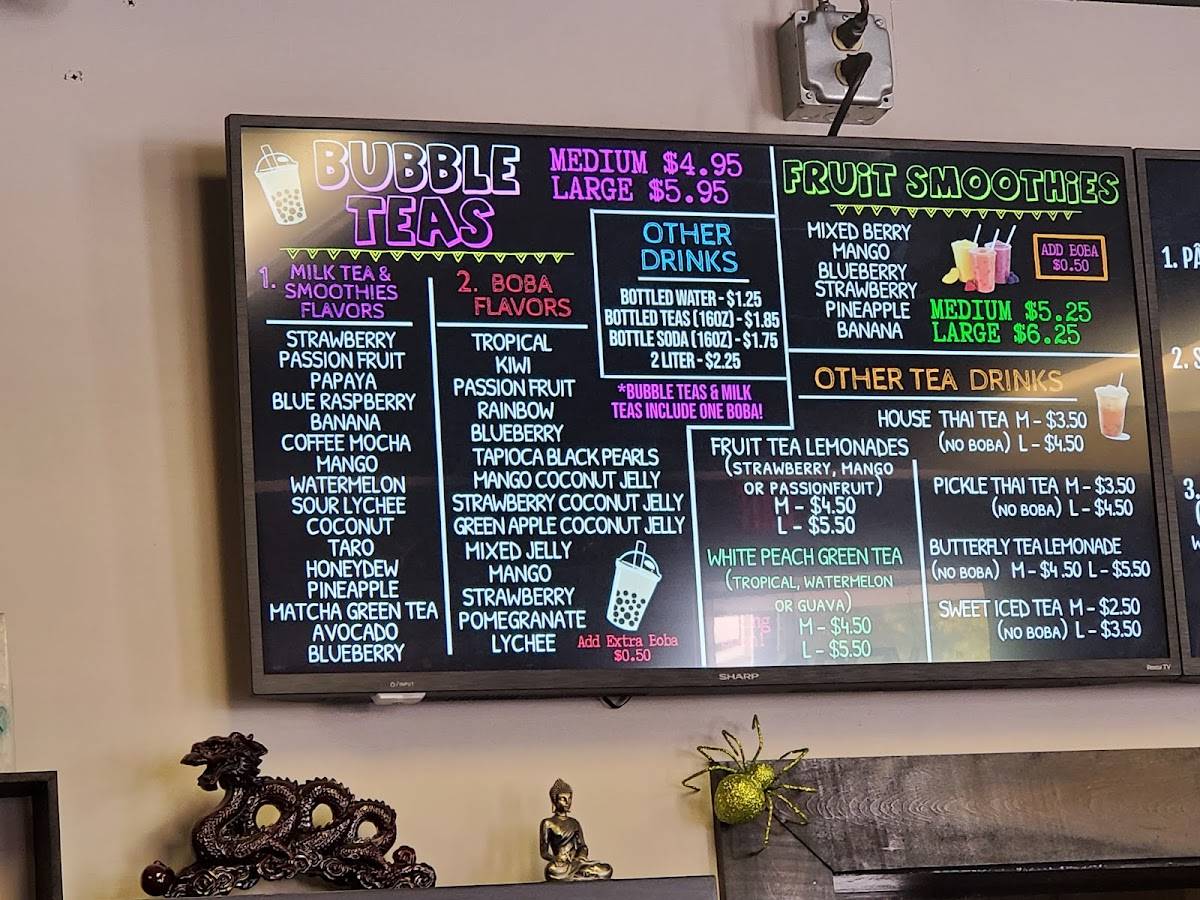 BUBBLE
TEAS
MEDIUM $4.95
LARGE $5.95
1. MILK TEA &
SMOOTHIES
FLAVORS
STRAWBERRY
PASSION FRUIT
PAPAYA
BLUE RASPBERRY
BANANA
COFFEE MOCHA
MANGO
WATERMELON
SOUR LYCHEE
COCONUT
TARO
HONEYDEW
PINEAPPLE
MATCHA GREEN TEA
AVOCADO
BLUEBERRY
2. BOBA
FLAVORS
TROPICAL
KIWI
PASSION FRUIT
RAINBOW
BLUEBERRY
TAPIOCA BLACK PEARLS
MANGO COCONUT JELLY
STRAWBERRY COCONUT JELLY
GREEN APPLE COCONUT JELLY
MIXED JELLY
MANGO
STRAWBERRY
POMEGRANATE
LYCHEE
Add Extra Boba
$0.50
OTHER
DRINKS
BOTTLED WATER - $1.25
BOTTLED TEAS (16OZ) - $1.85
BOTTLE SODA (16OZ) - $1.75
2 LITER - $2.25
*BUBBLE TEAS & MILK
TEAS INCLUDE ONE BOBA!
FRUIT SMOOTHIES
MIXED BERRY
MANGO
BLUEBERRY
STRAWBERRY
PINEAPPLE
BANANA
ADD BOBA
$0.50
MEDIUM $5.25
LARGE $6.25
OTHER TEA DRINKS
FRUIT TEA LEMONADES
(STRAWBERRY, MANGO
OR PASSIONFRUIT)
M - $4.50
L - $5.50
WHITE PEACH GREEN TEA
(TROPICAL, WATERMELON
OR GUAVA)
M - $4.50
L - $5.50
HOUSE THAI TEA M - $3.50
(NO BOBA) L - $4.50
PICKLE THAI TEA M - $3.50
(NO BOBA) L - $4.50
BUTTERFLY TEA LEMONADE
(NO BOBA) M - $4.50 L - $5.50
SWEET ICED TEA M - $2.50
(NO BOBA) L - $3.50
INPUT
SHARP
Roku TV
1. PÂ
2. S
3.